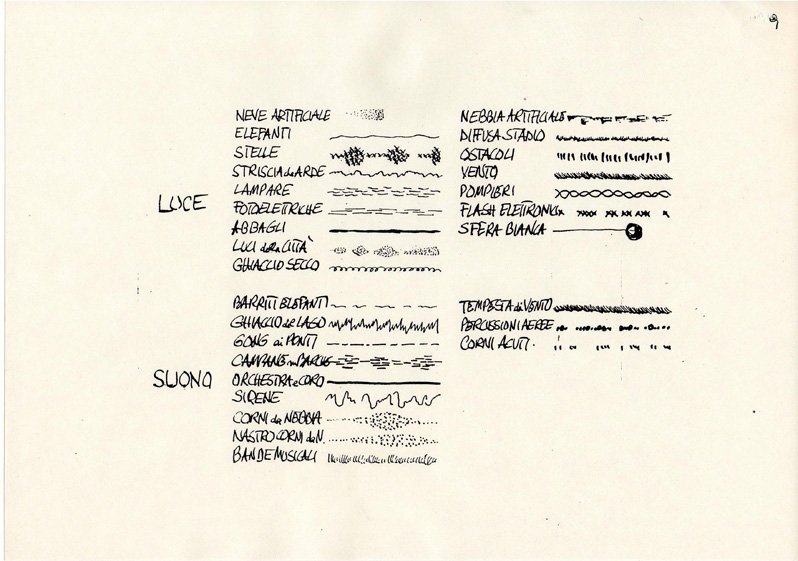 9
LUCE
NEVE ARTIFICIALE
ELEFANTI
STELLE
STRISCIA che ARDE
LAMPARE
FOTOELETTRICHE
ABBAGLI
LUCI della CITTÀ
GHIACCIO SECCO
NEBBIA ARTIFICIALE
DIFFUSA STADIO
OSTACOLI
VENTO
POMPIERI
FLASH ELETTRONICI
SFERA BIANCA
SUONO
BARRITI ELEFANTI
GHIACCIO del LAGO
GONG ai PONTI
CAMPANE in BARCHE
ORCHESTRA e CORO
SIRENE
CORNI da NEBBIA
NASTRO CORNI da N.
BANDE MUSICALI
TEMPESTA di VENTO
PERCUSSIONI AEREE
CORNI ACUTI.